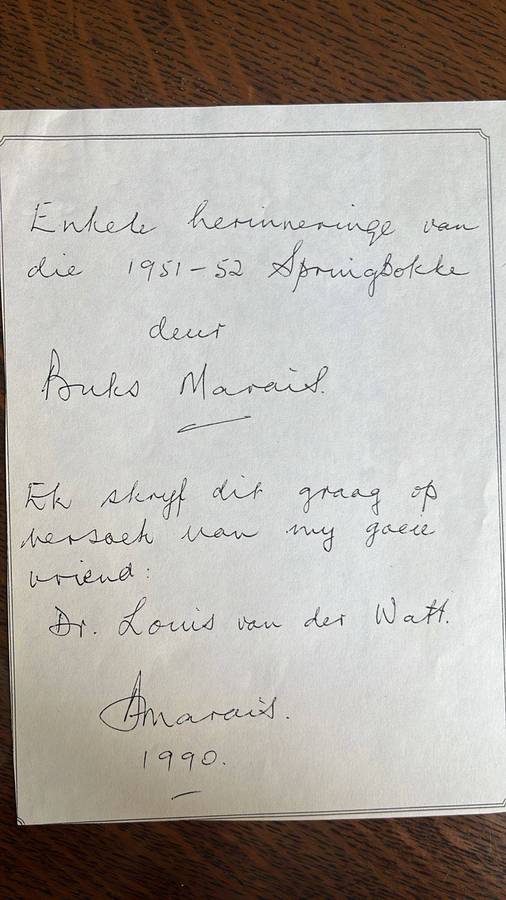 Enkele herinneringe van
die 1951-52 Springbokke
deur
Buks Marais.
Ek skryf dit graag op
versoek van my goeie
vriend:
Dr. Louis van der Watt.
Marais.
1990.